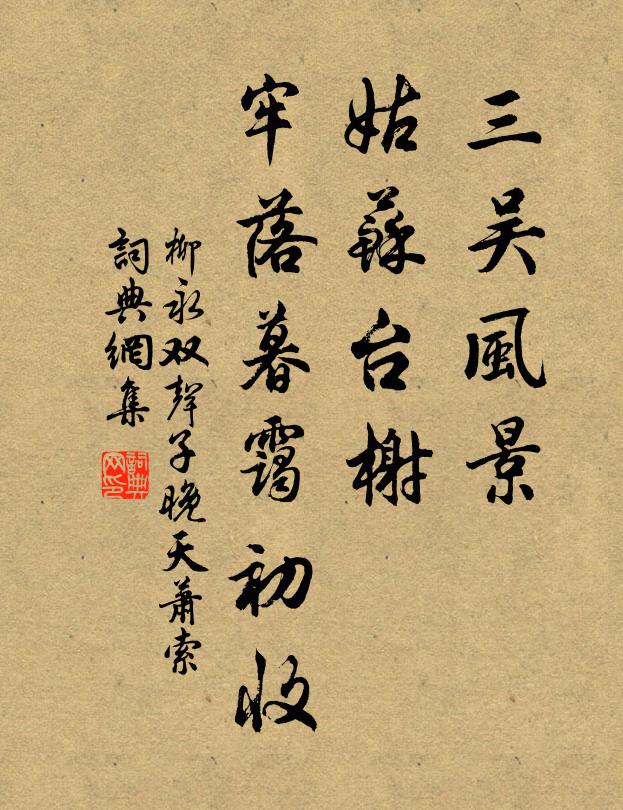 三吴風景
姑蘇台榭
牢落暮靄初收
柳永双聲子晚天蕭索
詞典網集
詞典网印